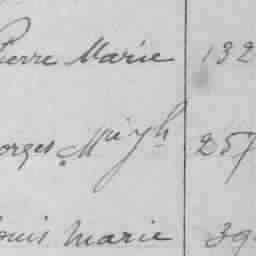 Pierre Marie 132
orges M 257
ouis Marie 39